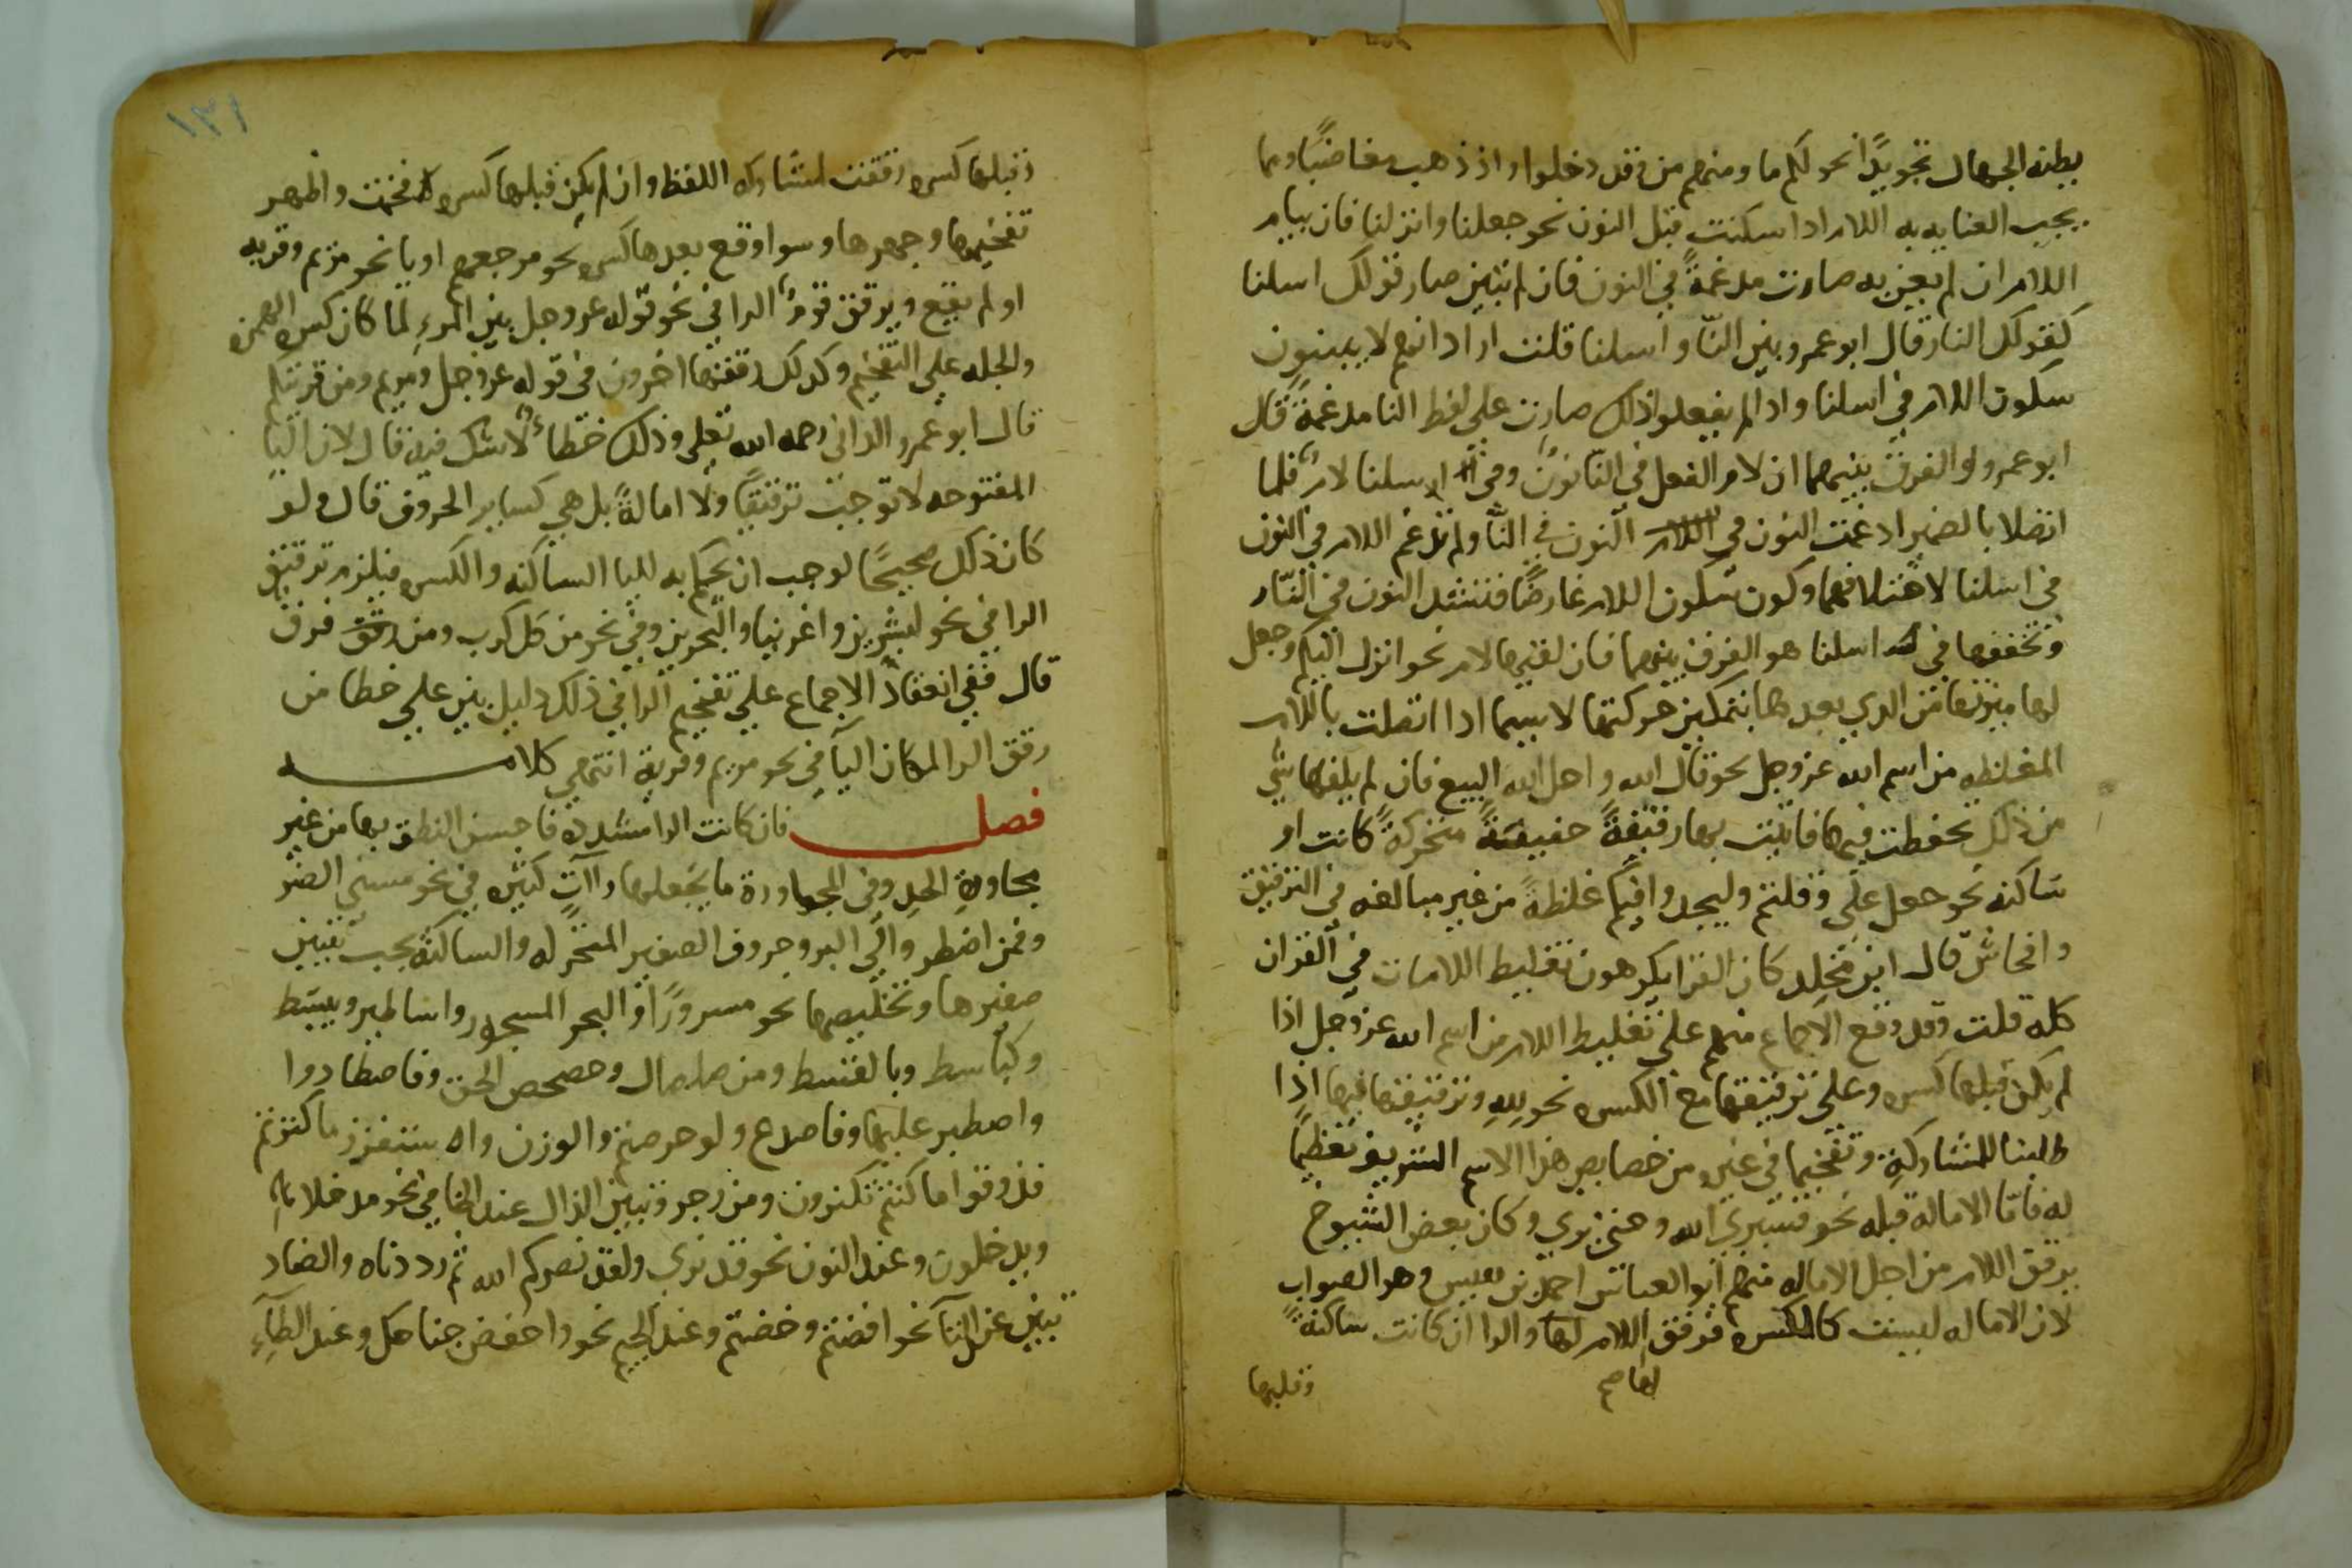 يظنه الجهال تجويدًا نحو لكم ما ومنهم من وقد دخلوا واذ ذهب مغاضبًا ومما
يجب العنايه به اللام اذا سكنت قبل النون نحو جعلنا وانزلنا فان بيان
اللام ان لم يعن به صارت مدغمةً في النون فان لم تبين صار قولك اسلنا
كقولك النار قال ابو عمرو بين النّا و اسلنا قلت اراد انهم لا يبينون
سكون اللام في اسلنا واذا لم يفعلوا ذلك صارت على لفظ النا مدغمةً قال
ابو عمرو والفرق بينهما ان لام الفعل في النا نونٌ وفي ارسلنا لامٌ فلما
اتصلا بالضمير ادغمت النون في النون في النّا ولم تدغم اللام في النون
في اسلنا لاختلافهما وكون سكون اللام عارضًا فتشتد النون في النّار
وتخففها في اسلنا هو الفرق بينهما فان لقيها لام نحو انزل اليكم وجعل
لها ميزتها من الذي بعدها بتمكين حركتها لاسيما اذا اتصلت باللام
المغلظه من اسم الله عز وجل نحو قال الله و احل الله البيع فان لم يلقها شي
من ذلك تحفظت فيها فاتيت بها رقيقةً خفيفةً متحركةً كانت او
ساكنه نحو جعل على وقلتم وليجدوا فيكم غلظةً من غير مبالغه في الترقيق
وافحاش قال ابن مخلد كان القرا يكرهون تغليظ اللامات في القران
كله قلت وقد وقع الاجماع منهم على تغليظ اللام من اسم الله عز وجل اذا
لم يكن قبلها كسره وعلى ترقيقها مع الكسره نحو لله وترقيقها فيها اذا
طلبنا للمشاركة وتفخيمها في غيره من خصايص هذا الاسم الشريف تعظيمًا
له فامّا الاماله قبله نحو فسيرى الله وحتى نرى وكان بعض الشيوخ
يرقق اللام من اجل الاماله منهم ابو العباس احمد بن نفيس وهو الصواب
لان الاماله ليست كالكسره فترقق اللام لها والرا ان كانت ساكنةً
لها صح
وقبلها
١٣١
وقبلها كسره رققت لمشاركه اللفظ وان لم يكن قبلها كسره فخمت واظهر
تفخيمها وجهرها وسوا وقع بعدها كسره نحو مرجعهم او يا نحو مريم وقريه
او لم يقع ويرقق قومٌ الرا في نحو قوله عز وجل بين المرء لما كان كسره الهمزه
والجله على التفخيم وكذلك رققها اخرون في قوله عز وجل ومريم ومن قريتكم
قال ابو عمرو الداني رحمه الله تعلى وذلك خطاءٌ لا شك فيه قال لان اليا
المفتوحه لا توجب ترقيقًا ولا امالةً بل هي كساير الحروف قال ولو
كان ذلك صحيحًا لوجب ان يحكم به لليا الساكنه والكسره فيلزم ترقيق
الرا في نحو لبشرين واغرينا والبحرين وفي نحو من كل كرب ومن رقق فرق
قال ففي انعقاد الاجماع على تفخيم الرا في ذلك دليل بين على خطا من
رقق الرا لمكان اليآ في نحو مريم وقرية انتهى كلامه
فصل فان كانت الرا مشدده فاحسن النطق بها من غير
مجاوزة الحد وفي المجاوزة ما يجعلها راآتٍ كثيره في نحو مسني الضر
وفمن اضطر والى البر وحروف الصفير المتحركه والساكنه يجب تبيين
صفيرها وتخليصها نحو مسرورًا والبحر المسجور واساطير ويبسط
وكباسط وبالقسط ومن صلصال وحصحص الحق وفاصطادوا
واصطبر عليها وفاصدع ولو حرصتم والوزن واستفزز ما كنزتم
فذوقوا ما كنتم تكنزون ومن رجز وتبين الدال عند الخا في نحو مدخلا
ويدخلون وعند النون نحو قد نرى ولقد نصركم الله ثم رددناه والضاد
تبين عند التآ نحو افضتم وخضتم وعند الجيم نحو واخفض جناحك وعند الطآء